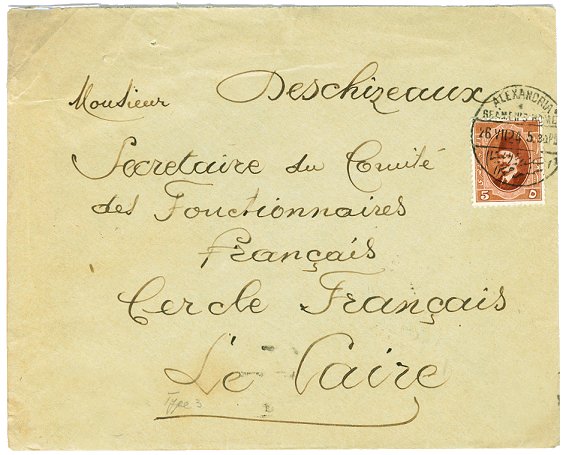 Monsieur Deschizeaux
Secretaire du Comité
des Fonctionnaires
Français
Cercle Français
Le Caire
Type 3
ALEXANDRIA
SEAMEN'S HOME
26 VII 24 5.
5 ٥